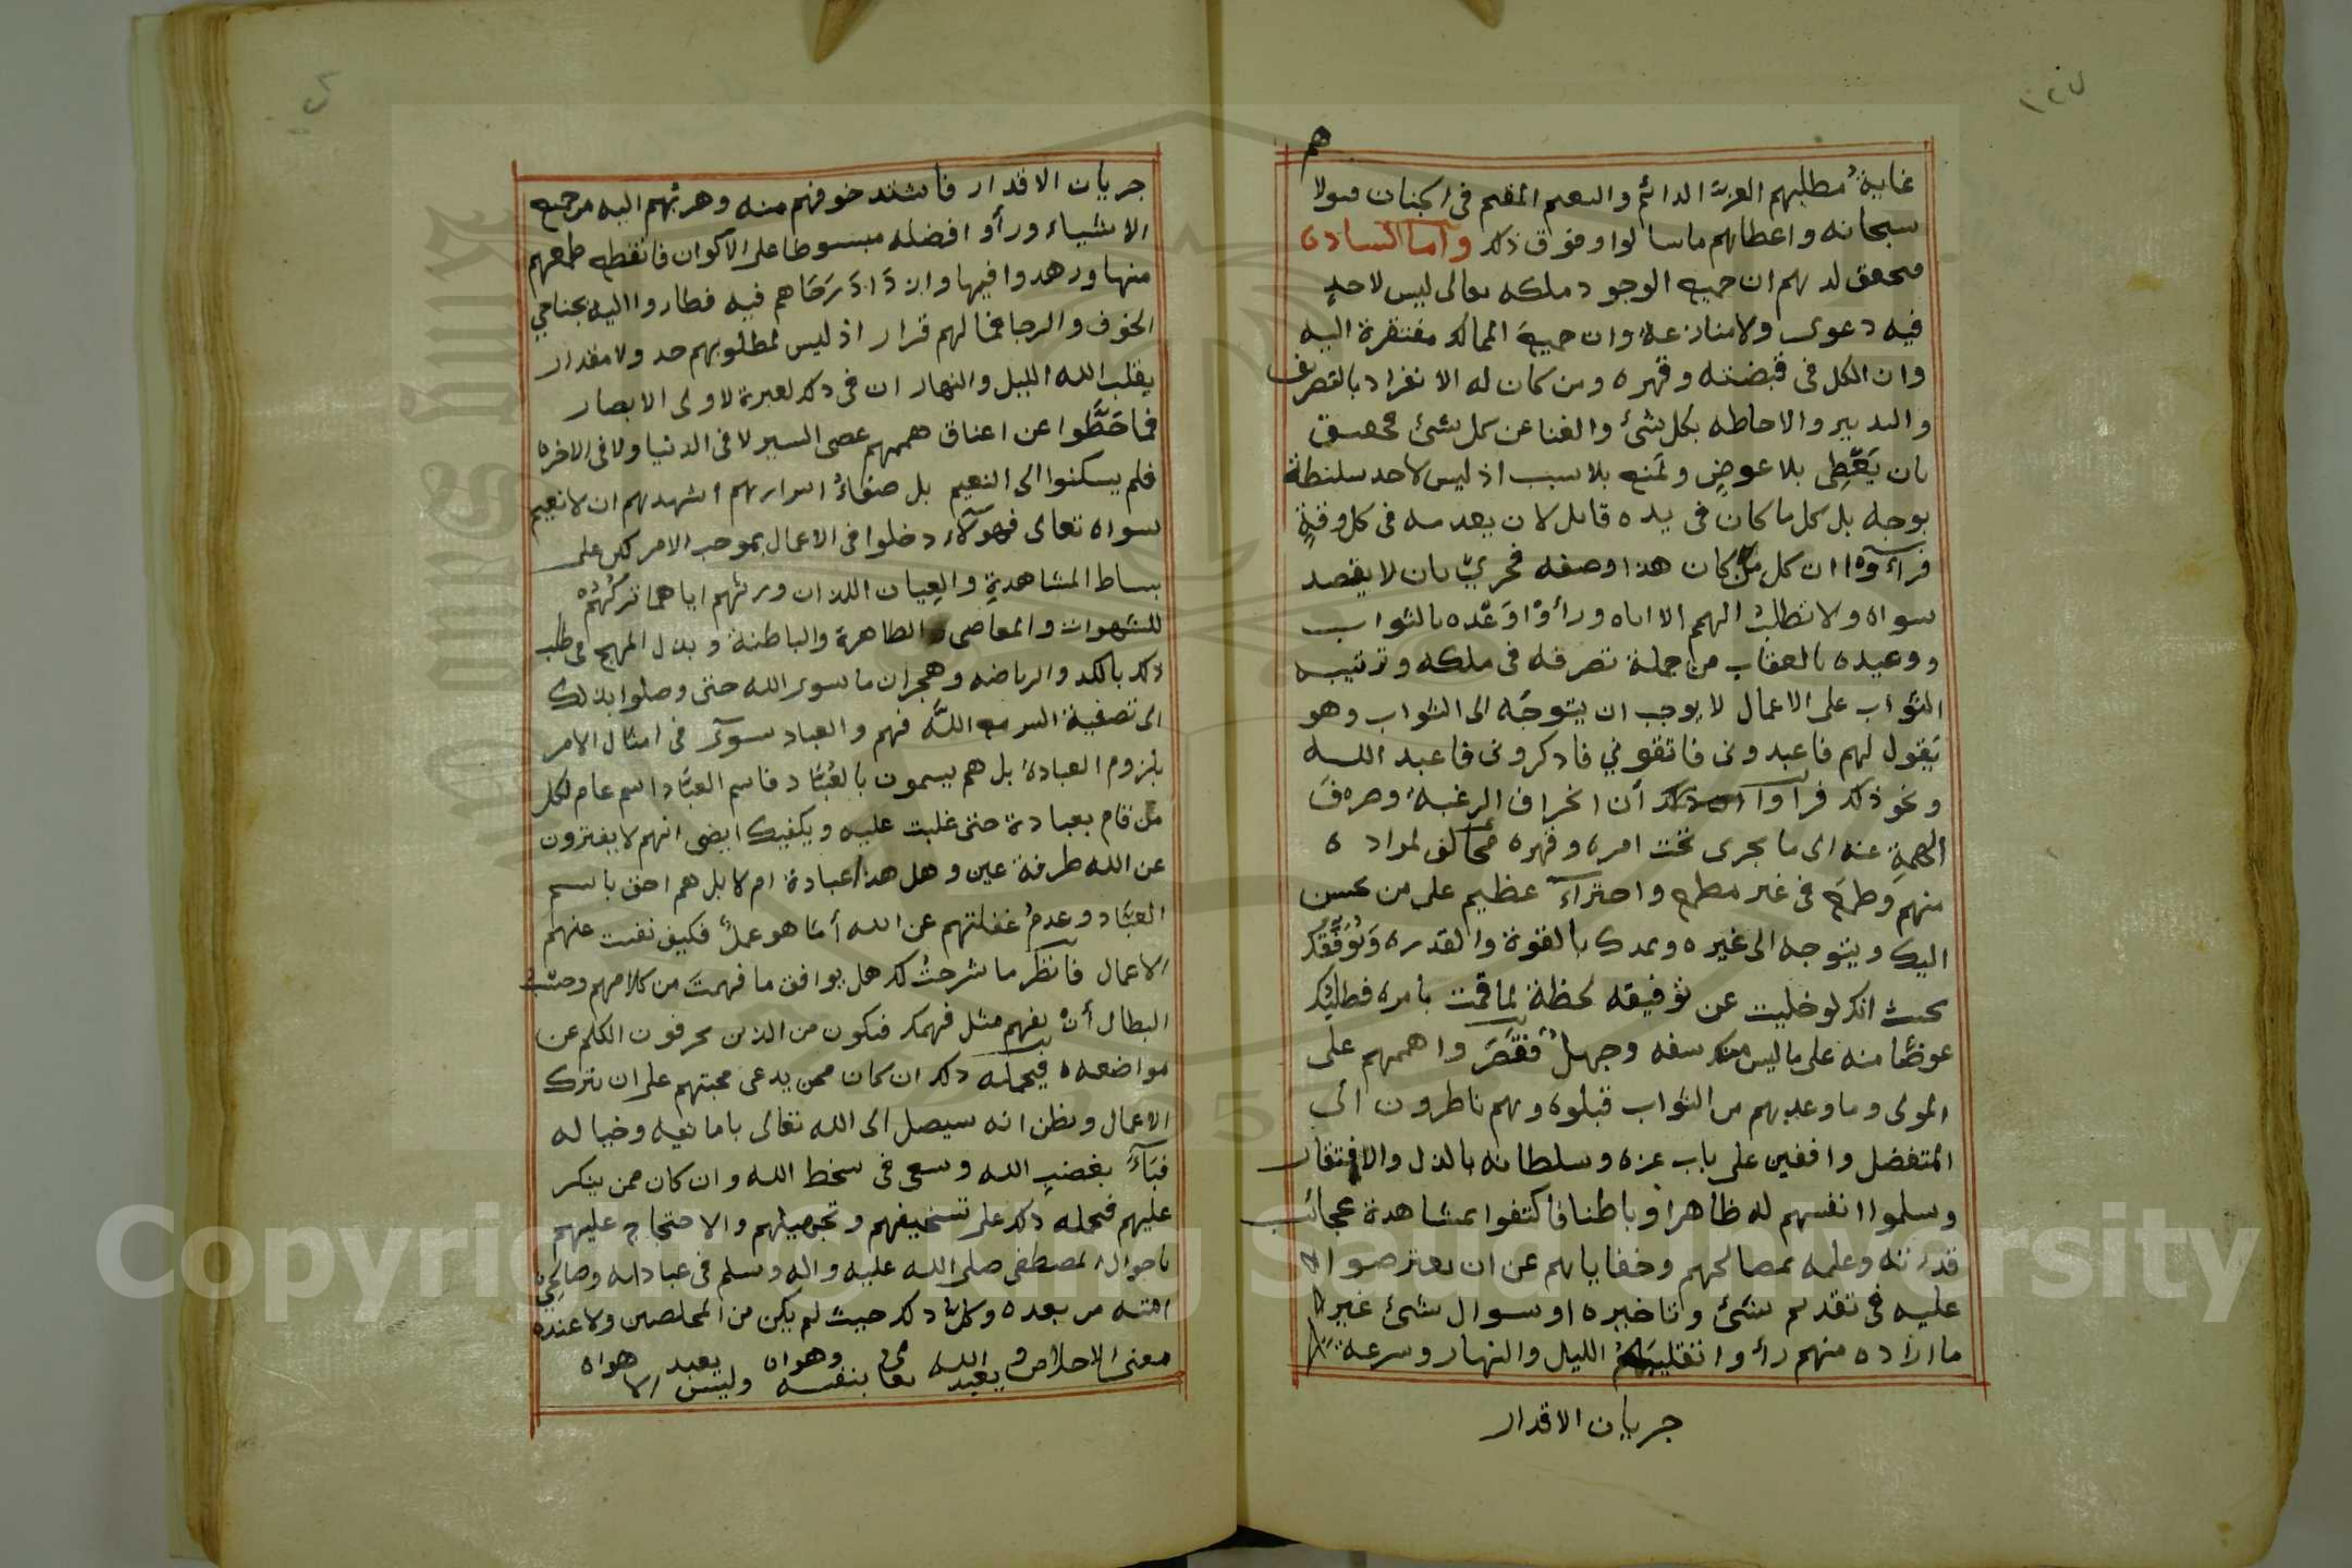 غاية مطلبهم العزيز الدائم والنعيم المقيم فى الجنان
سبحانه واعطاهم ما سالوا وفوق ذلك واما السادات
فتحقق لديهم ان جميع الوجود ملكه تعالى ليس لاحد
فيه دعوى ولا منازعة وان جميع الممالك مفتقرة اليه
وان الكل فى قبضته وقهره ومن كان له الانفراد بالتصرف
والتدبير والاحاطه بكل شئ والغنا عن كل شئ فحقيق
بان يَعْطِى بلا عوضٍ ويَمنع بلا سبب اذ ليس لاحد سلنطة
بوجه بل كل ما كان فى يده قابل لان يعدمه فى كل وقتٍ
فرآءوه ان كل من كان هذا وصفه فحريٌ بان لا يقصد
سواه ولا تطلب الهمم الا اياه ورأوا وَعْده بالثواب
ووعيده بالعقاب من جملة تصرفه فى ملكه وترتيب
الثواب على الاعمال لا يوجب ان يتوجه الى الثواب وهو
يَقول لهم فاعبدونى فاتقوني فاذكرونى فاعبد الله
ونحو ذلك فراوا أن انحراف الرغبة وصرفَ
الهمةِ عنه الى ما يجرى تحت امره وقهره مخالف لمراده
منهم وطمع فى غير مطمع واجترآء عظيم على من يحسن
اليك ويتوجه الى غيره ويمدك بالقوة والقدره وَيُوَفِّقُك
بحيث انك لو خليت عن توفيقه لحظة لما قمت بامره فطلبُك
عوضًا منه على ما ليس منك سفه وجهلٌ فقَصَرَوا هممهم على
المولى وما وعدهم من الثواب قبلوه وهم ناظرون الى
المتفضل واقفين على باب عزه وسلطانه بالذل والافتقار
وسلموا انفسهم له ظاهرا وباطنا فاكتفوا بمشاهدة عجائب
قدرته وعلمه بمصالحهم وخفاياهم عن ان يعترضوا
عليه فى تقديم شئ وتاخيره او سوال شئ غير
ما اراده منهم رأوا تقليبَ الليل والنهار وسرعة
جريان الاقدار
جريان الاقدار فاشتد خوفهم منه وهربُهم اليه من جميع
الاشياء ورأوا فضله مبسوطا على الأكوان فانقطع طمعهم
منها وزهدوا فيها وازدَادَ رَجَاهم فيه فطاروا اليه بجناحي
الخوف والرجا فما لهم قرار اذ ليس لمطلوبهم حد ولا مقدار
يقلب الله الليل والنهار ان فى ذلك لعبرة لاولى الابصار
فما حَطَّوا عن اعناق هممهم عصى السير لا فى الدنيا ولا فى الاخره
فلم يسكنوا الى النعيم بل صفاءُ اسرارهم اشهدهم ان لا نعيم
سواه تعالى فهوآلاء دخلوا فى الاعمال بموجب الامر لكن على
بساط المشاهدةِ والعِيان اللذان ورثهم اياهما تركُهُمْ
للشهوات والمعاصى الظاهرة والباطنة وبذل المهج فى طلب
ذلك بالكد والرياضه وهجران ما سوى الله حتى وصلوا بذلك
الى تصفية السر مع اللَّه فهم والعباد سوآء فى امتثال الامر
بلزوم العبادة بل هم يسمون بالعُبَّاد فاسم العبَّاد اسم عام لكل
من قام بعبادة حتى غلبت عليه ويكفيك ايضى انهم لا يفترون
عن الله طرفة عين وهل هذا عبادة ام لا بل هم احق باسم
العبَّاد وعدمُ غفلتهم عن الله أمَا هو عملٌ فكيف نفيت عنهم
الاعمال فانظر ما شرحتُ لك هل يوافق ما فهمتَ من كلامهم وحسْبُ
البطال أنْ يفهم مثل فهمك فتكون من الذين يحرفون الكلم عن
مواضعه فيحمله ذلك ان كان ممن يدعى محبتهم على ان يترك
الاعمال ويظن انه سيصل الى الله تعالى باما نيه وخياله
فبَآءَ بغضبٍ الله وسعى فى سخط الله وان كان ممن ينكر
عليهم فيحمله ذلك على تسخيفهم وتجهيلهم والاحتجاج عليهم
باحوال المصطفى صلى الله عليه واله وسلم فى عباداته وصالحي
امته من بعده وكل ذلك حيث لم يكن من المخلصين ولا عنده
معنى الاخلاص يعبد الله تعا بنفسه وهواه وليس يعبد الا هواه